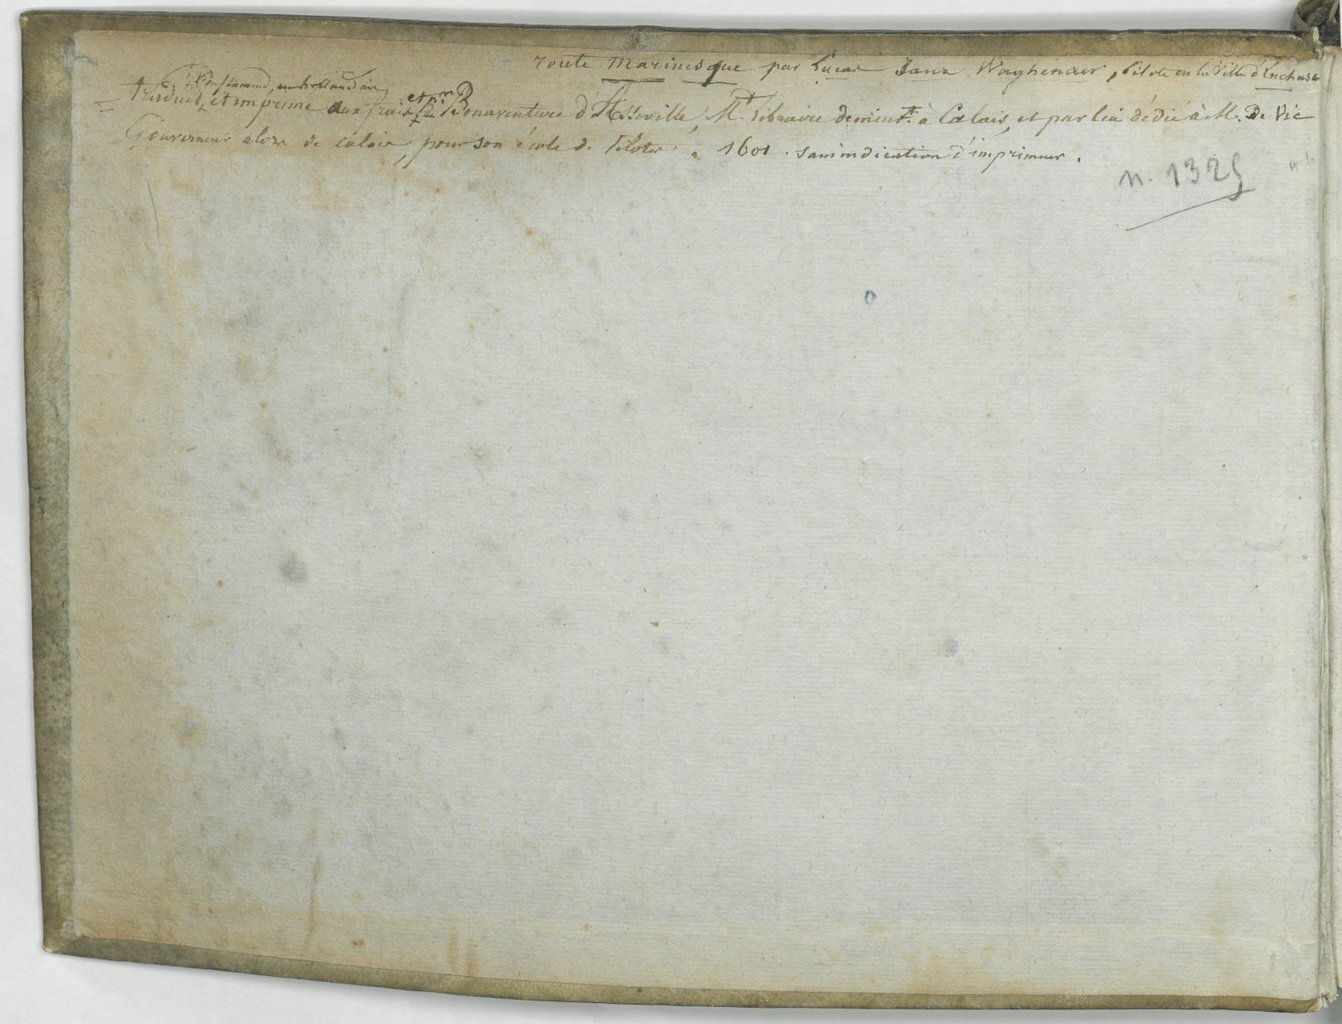 route marinesque par Lucas Janz Waghenaer, Pilote en la Ville d'Enchuse
du flamand, ou hollandais
traduit, et imprimé aux frais et Bonaventure d'Asseville, Md. libraire demeurt. à Calais, et par lui dédié à M. De Vic
Gouverneur alors de Calais, pour son école de Pilotes. 1601. sans indication d'imprimeur.
n. 1325